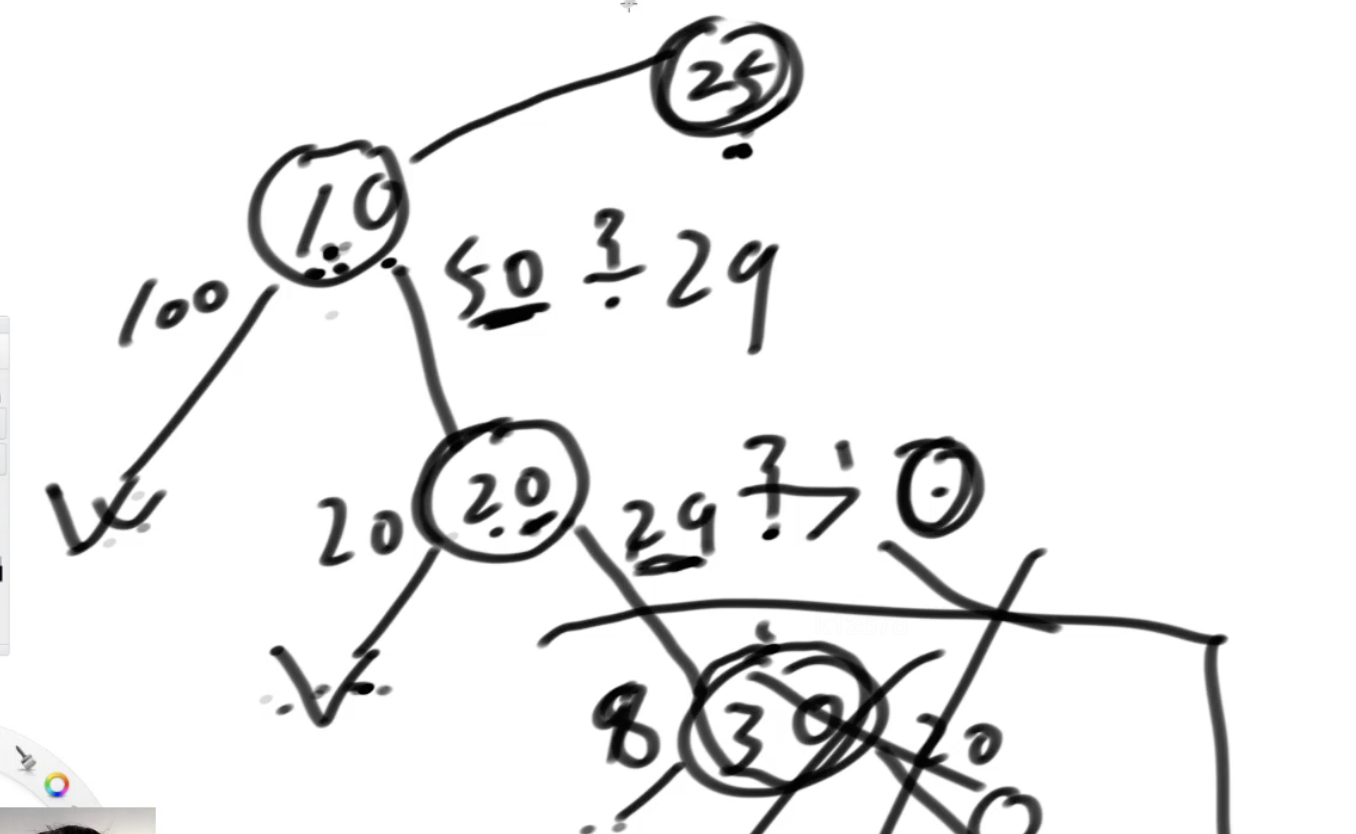 25
10
100 50 ? 29
20 20 29 ? 0
8 30 20